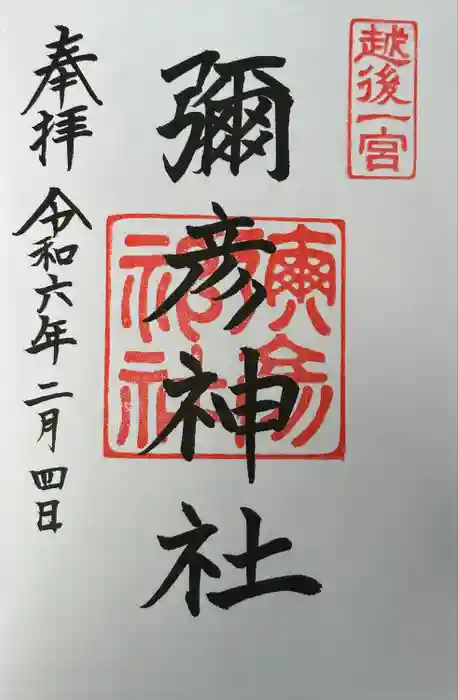 越後一宮
彌彦神社
彌彦神社
奉拝 令和六年二月四日